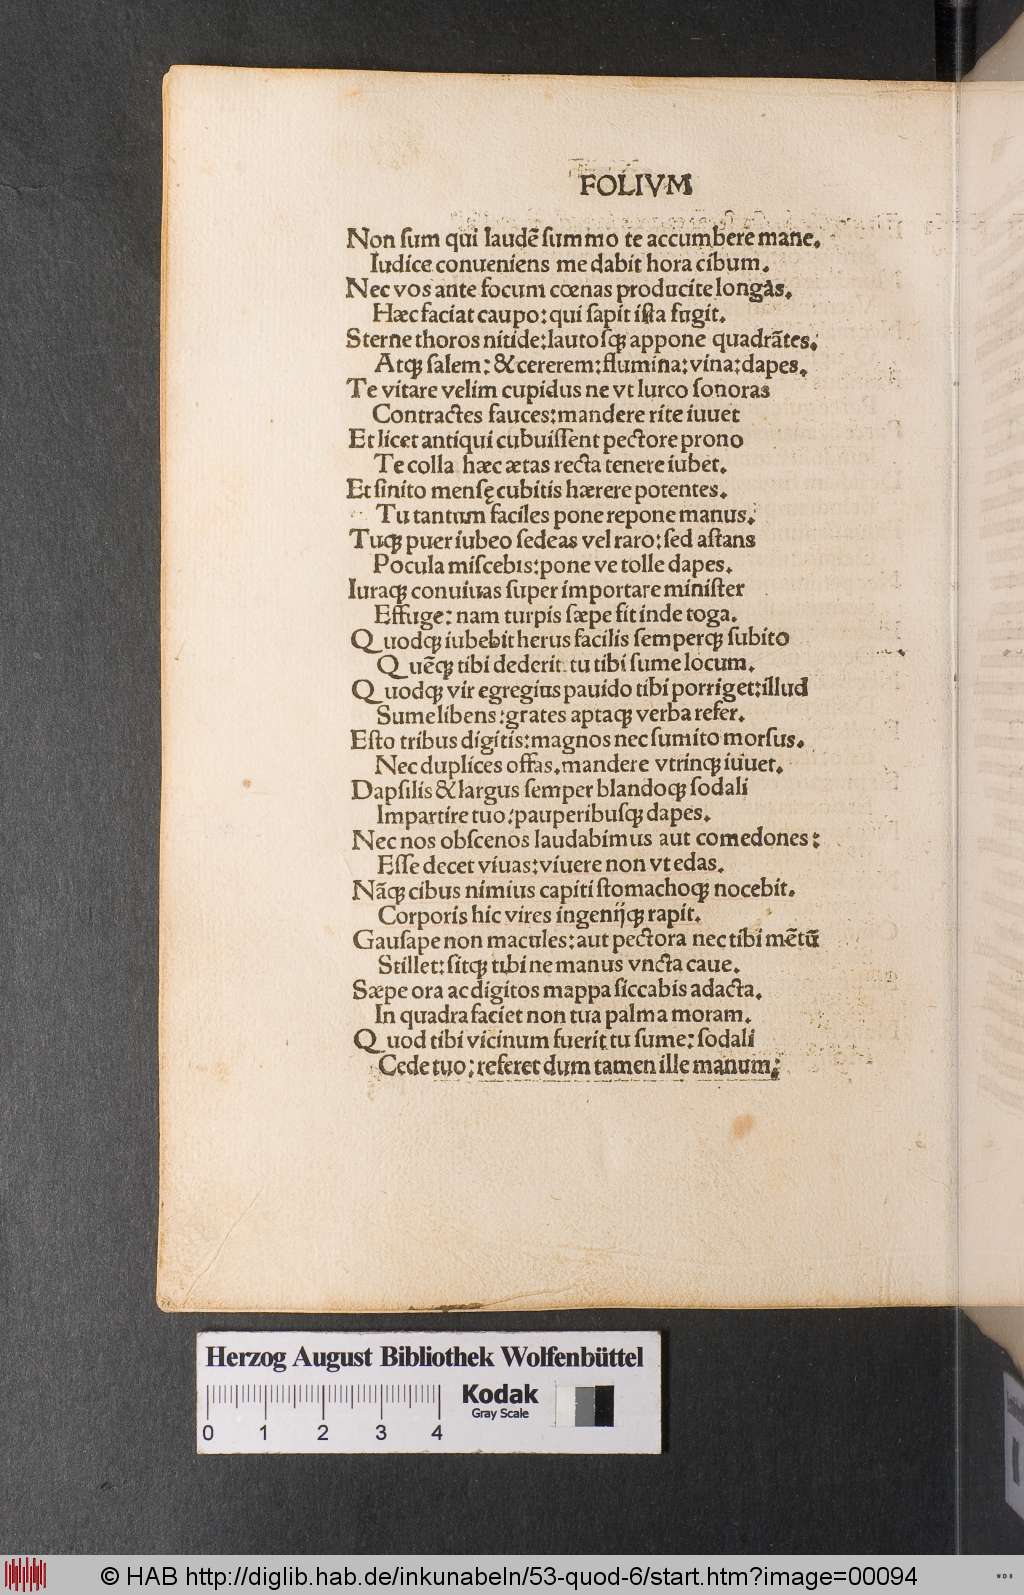 FOLIVM
Non ſum qui laudē ſummo te accumbere mane.
Iudice conueniens me dabit hora cibum.
Nec vos ante focum cœnas producite longas.
Hæc faciat caupo: qui ſapit iſta fugit.
Sterne thoros nitide: lautoſqꝫ appone quadrātes.
Atqꝫ ſalem: & cererem: flumina: vina: dapes.
Te vitare velim cupidus ne vt lurco ſonoras
Contractes fauces: mandere rite iuuet
Et licet antiqui cubuiſſent pectore prono
Te colla hæc ætas recta tenere iubet.
Et ſinito menſę cubitis hærere potentes.
Tu tantum faciles pone repone manus.
Tuqꝫ puer iubeo ſedeas vel raro: ſed aſtans
Pocula miſcebis: pone ve tolle dapes.
Iuraqꝫ conuiuas ſuper importare miniſter
Effuge: nam turpis ſæpe fit inde toga.
Quodqꝫ iubebit herus facilis ſemperqꝫ ſubito
Quēqꝫ tibi dederit tu tibi ſume locum.
Quodqꝫ vir egregius pauido tibi porriget: illud
Sume libens: grates aptaqꝫ verba refer.
Eſto tribus digitis: magnos nec ſumito morſus.
Nec duplices offas. mandere vtrinqꝫ iuuet.
Dapſilis & largus ſemper blandoqꝫ ſodali
Impartire tuo: pauperibuſqꝫ dapes.
Nec nos obſcenos laudabimus aut comedones:
Eſſe decet viuas: viuere non vt edas.
Nāqꝫ cibus nimius capiti ſtomachoqꝫ nocebit.
Corporis hic vires ingenijqꝫ rapit.
Gauſape non macules: aut pectora nec tibi mētū
Stillet: ſitqꝫ tibi ne manus vncta caue.
Sæpe ora ac digitos mappa ſiccabis adacta.
In quadra faciet non tua palma moram.
Quod tibi vicinum fuerit tu ſume: ſodali
Cede tuo: referet dum tamen ille manum:
Herzog August Bibliothek Wolfenbüttel
Kodak
Gray Scale
0 1 2 3 4
© HAB http://diglib.hab.de/inkunabeln/53-quod-6/start.htm?image=00094